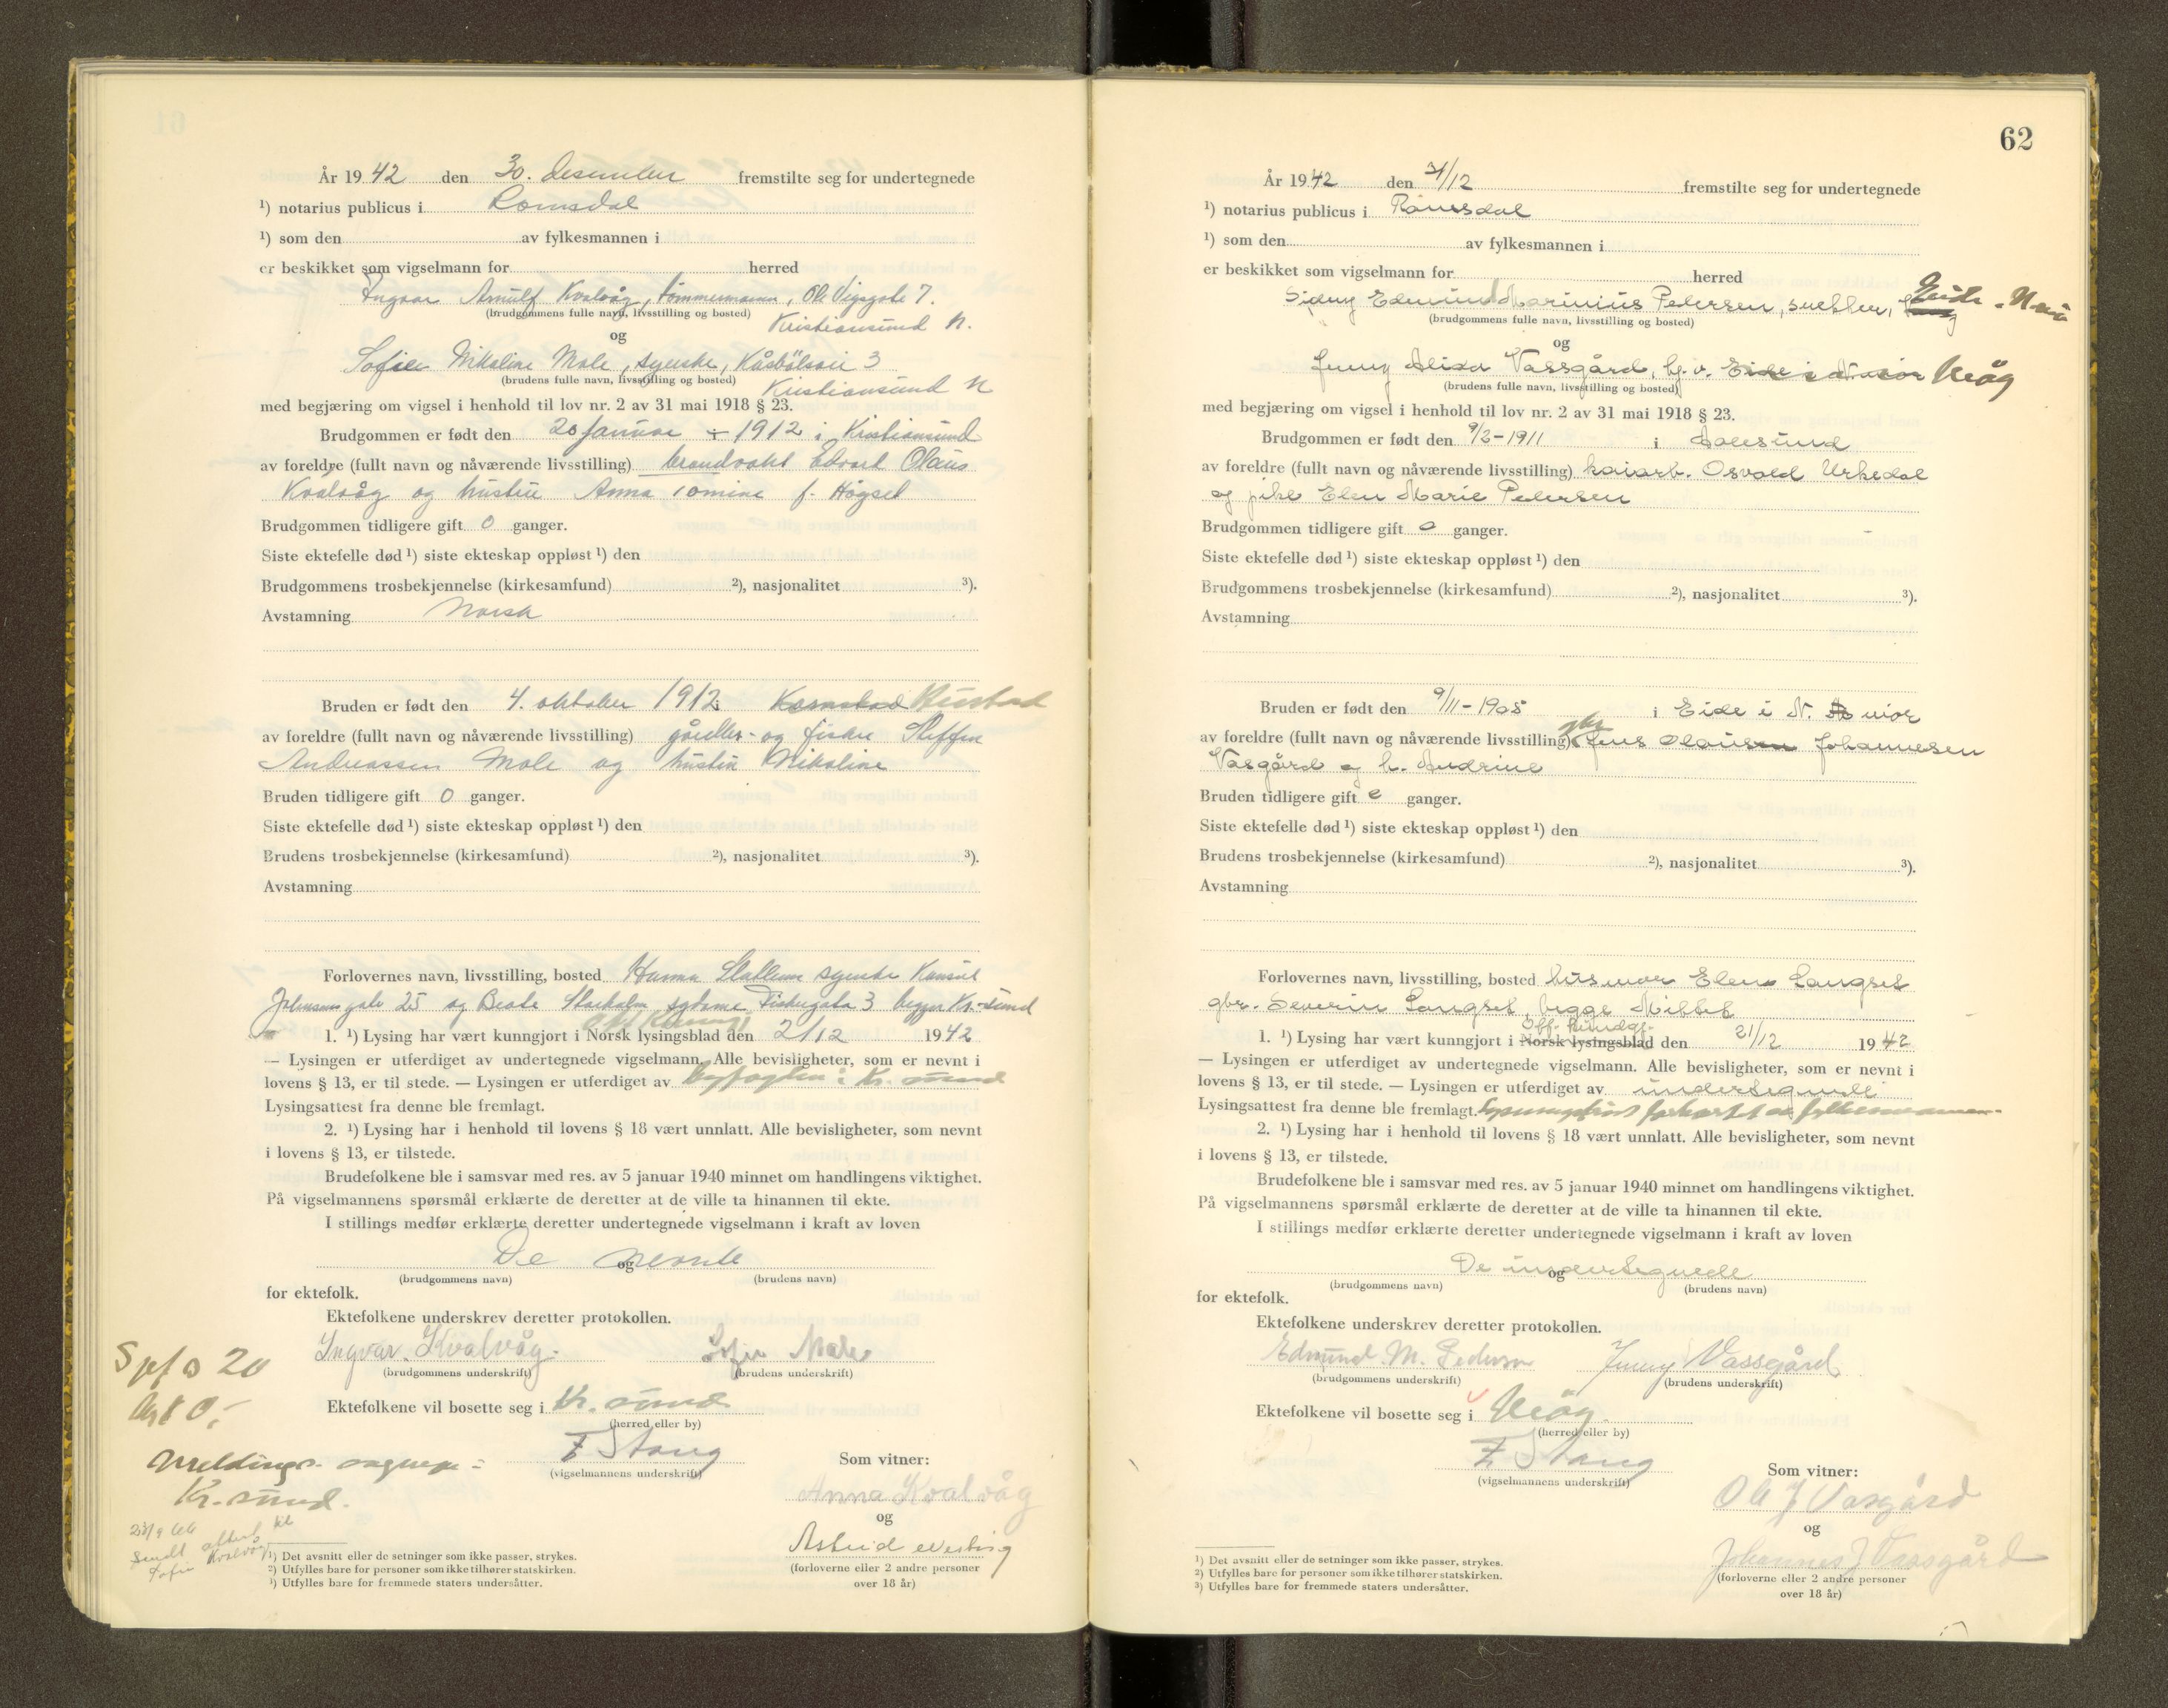 År 1942 den 30. desember fremstilte seg for undertegnede
¹) notarius publicus i Romsdal
¹) som den av fylkesmannen i
er beskikket som vigselmann for herred
Ingvar Arnulf Kvalvåg, tømmermann, Ole Vigsgate 7.
(brudgommens fulle navn, livsstilling og bosted) Kristiansund N.
og
Sofie Nikoline Male, syerske, 3
(brudens fulle navn, livsstilling og bosted) Kristiansund N
med begjæring om vigsel i henhold til lov nr. 2 av 31 mai 1918 § 23.
Brudgommen er født den 20 januar 1912 i Kristiansund
av foreldre (fullt navn og nåværende livsstilling) brandvakt Edvart Olaus
Kvalvåg og hustru Anna f. Høgset
Brudgommen tidligere gift 0 ganger.
Siste ektefelle død ¹) siste ekteskap oppløst ¹) den
Brudgommens trosbekjennelse (kirkesamfund) ²), nasjonalitet ³).
Avstamning Norsk
Bruden er født den 4. oktober 1912 i Bustad
av foreldre (fullt navn og nåværende livsstilling) gårdbr.- og fisker Steffen
Andreassen Male og hustru Nikoline
Bruden tidligere gift 0 ganger.
Siste ektefelle død ¹) siste ekteskap oppløst ¹) den
Brudens trosbekjennelse (kirkesamfund) ²), nasjonalitet ³).
Avstamning
Forlovernes navn, livsstilling, bosted Hanna syerske Konsul
Johnsens gate 25 og Beate Storholm sydame Fiskergata 3 begge Kr.sund
1. ¹) Lysing har vært kunngjort i Norsk lysingsblad den 2/12 1942
— Lysingen er utferdiget av undertegnede vigselmann. Alle bevisligheter, som er nevnt i
lovens § 13, er til stede. — Lysingen er utferdiget av byfogden i Kr. sund
Lysingsattest fra denne ble fremlagt.
2. ¹) Lysing har i henhold til lovens § 18 vært unnlatt. Alle bevisligheter, som nevnt
i lovens § 13, er tilstede.
Brudefolkene ble i samsvar med res. av 5 januar 1940 minnet om handlingens viktighet.
På vigselmannens spørsmål erklærte de deretter at de ville ta hinannen til ekte.
I stillings medfør erklærte deretter undertegnede vigselmann i kraft av loven
De og nevnte
(brudgommens navn) (brudens navn)
for ektefolk.
Ektefolkene underskrev deretter protokollen.
Ingvar Kvalvåg. Sofie Male
(brudgommens underskrift) (brudens underskrift)
Ektefolkene vil bosette seg i Kr. sund
(herred eller by)
F Stang
(vigselmannens underskrift)
Som vitner:
Anna Kvalvåg
og
Astrid
(forloverne eller 2 andre personer
over 18 år)
Kr. sund.
sendt attest til
Sofie Kvalvåg
¹) Det avsnitt eller de setninger som ikke passer, strykes.
²) Utfylles bare for personer som ikke tilhører statskirken.
³) Utfylles bare for fremmede staters undersåtter.
62
År 1942 den 31/12 fremstilte seg for undertegnede
¹) notarius publicus i Romsdal
¹) som den av fylkesmannen i
er beskikket som vigselmann for herred
Sidny Edmund Marinius Pedersen, snekker, Eide i N.mør
(brudgommens fulle navn, livsstilling og bosted)
og
Jenny Alida Vassgård, hj.v. Eide i N. mør Veøy
(brudens fulle navn, livsstilling og bosted)
med begjæring om vigsel i henhold til lov nr. 2 av 31 mai 1918 § 23.
Brudgommen er født den 9/2-1911 i Ålesund
av foreldre (fullt navn og nåværende livsstilling) kaiarb. Osvald Urkedal
og pike Elen Marie Pedersen
Brudgommen tidligere gift 0 ganger.
Siste ektefelle død ¹) siste ekteskap oppløst ¹) den
Brudgommens trosbekjennelse (kirkesamfund) ²), nasjonalitet ³).
Avstamning
Bruden er født den 9/11-1905 i Eide i N. mør
av foreldre (fullt navn og nåværende livsstilling) gbr. Jens Olausen Johannesen
Vasgård og h. Andrine
Bruden tidligere gift 0 ganger.
Siste ektefelle død ¹) siste ekteskap oppløst ¹) den
Brudens trosbekjennelse (kirkesamfund) ²), nasjonalitet ³).
Avstamning
Forlovernes navn, livsstilling, bosted husmor Elen Langset
gbr. Severin Langset, begge Mittet
Off. kundgj.
1. ¹) Lysing har vært kunngjort i Norsk lysingsblad den 21/12 1942
— Lysingen er utferdiget av undertegnede vigselmann. Alle bevisligheter, som er nevnt i
lovens § 13, er til stede. — Lysingen er utferdiget av undertegnede
Lysingsattest fra denne ble fremlagt. Lysningsfrist forkortet av fylkesmannen
2. ¹) Lysing har i henhold til lovens § 18 vært unnlatt. Alle bevisligheter, som nevnt
i lovens § 13, er tilstede.
Brudefolkene ble i samsvar med res. av 5 januar 1940 minnet om handlingens viktighet.
På vigselmannens spørsmål erklærte de deretter at de ville ta hinannen til ekte.
I stillings medfør erklærte deretter undertegnede vigselmann i kraft av loven
De undertegnede
og
(brudgommens navn) (brudens navn)
for ektefolk.
Ektefolkene underskrev deretter protokollen.
Edmund M. Pedersen Jenny Vassgård
(brudgommens underskrift) (brudens underskrift)
Ektefolkene vil bosette seg i Veøy.
(herred eller by)
F Stang
(vigselmannens underskrift)
Som vitner:
Ole J Vasgård
og
Johannes J Vassgård
(forloverne eller 2 andre personer
over 18 år)
¹) Det avsnitt eller de setninger som ikke passer, strykes.
²) Utfylles bare for personer som ikke tilhører statskirken.
³) Utfylles bare for fremmede staters undersåtter.